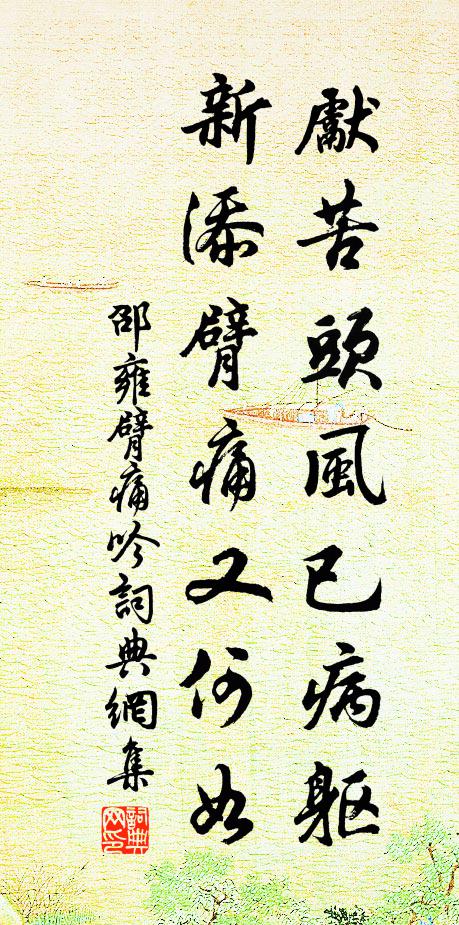 獻苦頭風已病軀
新添臂痛又何如
邵雍臂痛吟詞典網集
詞典
网印